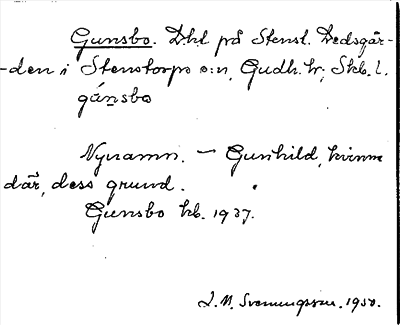 Gunsbo. Dhl på Stensl. Dedsgår-
-den i Stenstorps s:n, Gudh. hr; Skb. l.
gúnsbo
Nynamn. — Gunhild, kvinna
där, dess grund.
Gunsbo kb. 1937.
J. N. Svenungsson. 1950.